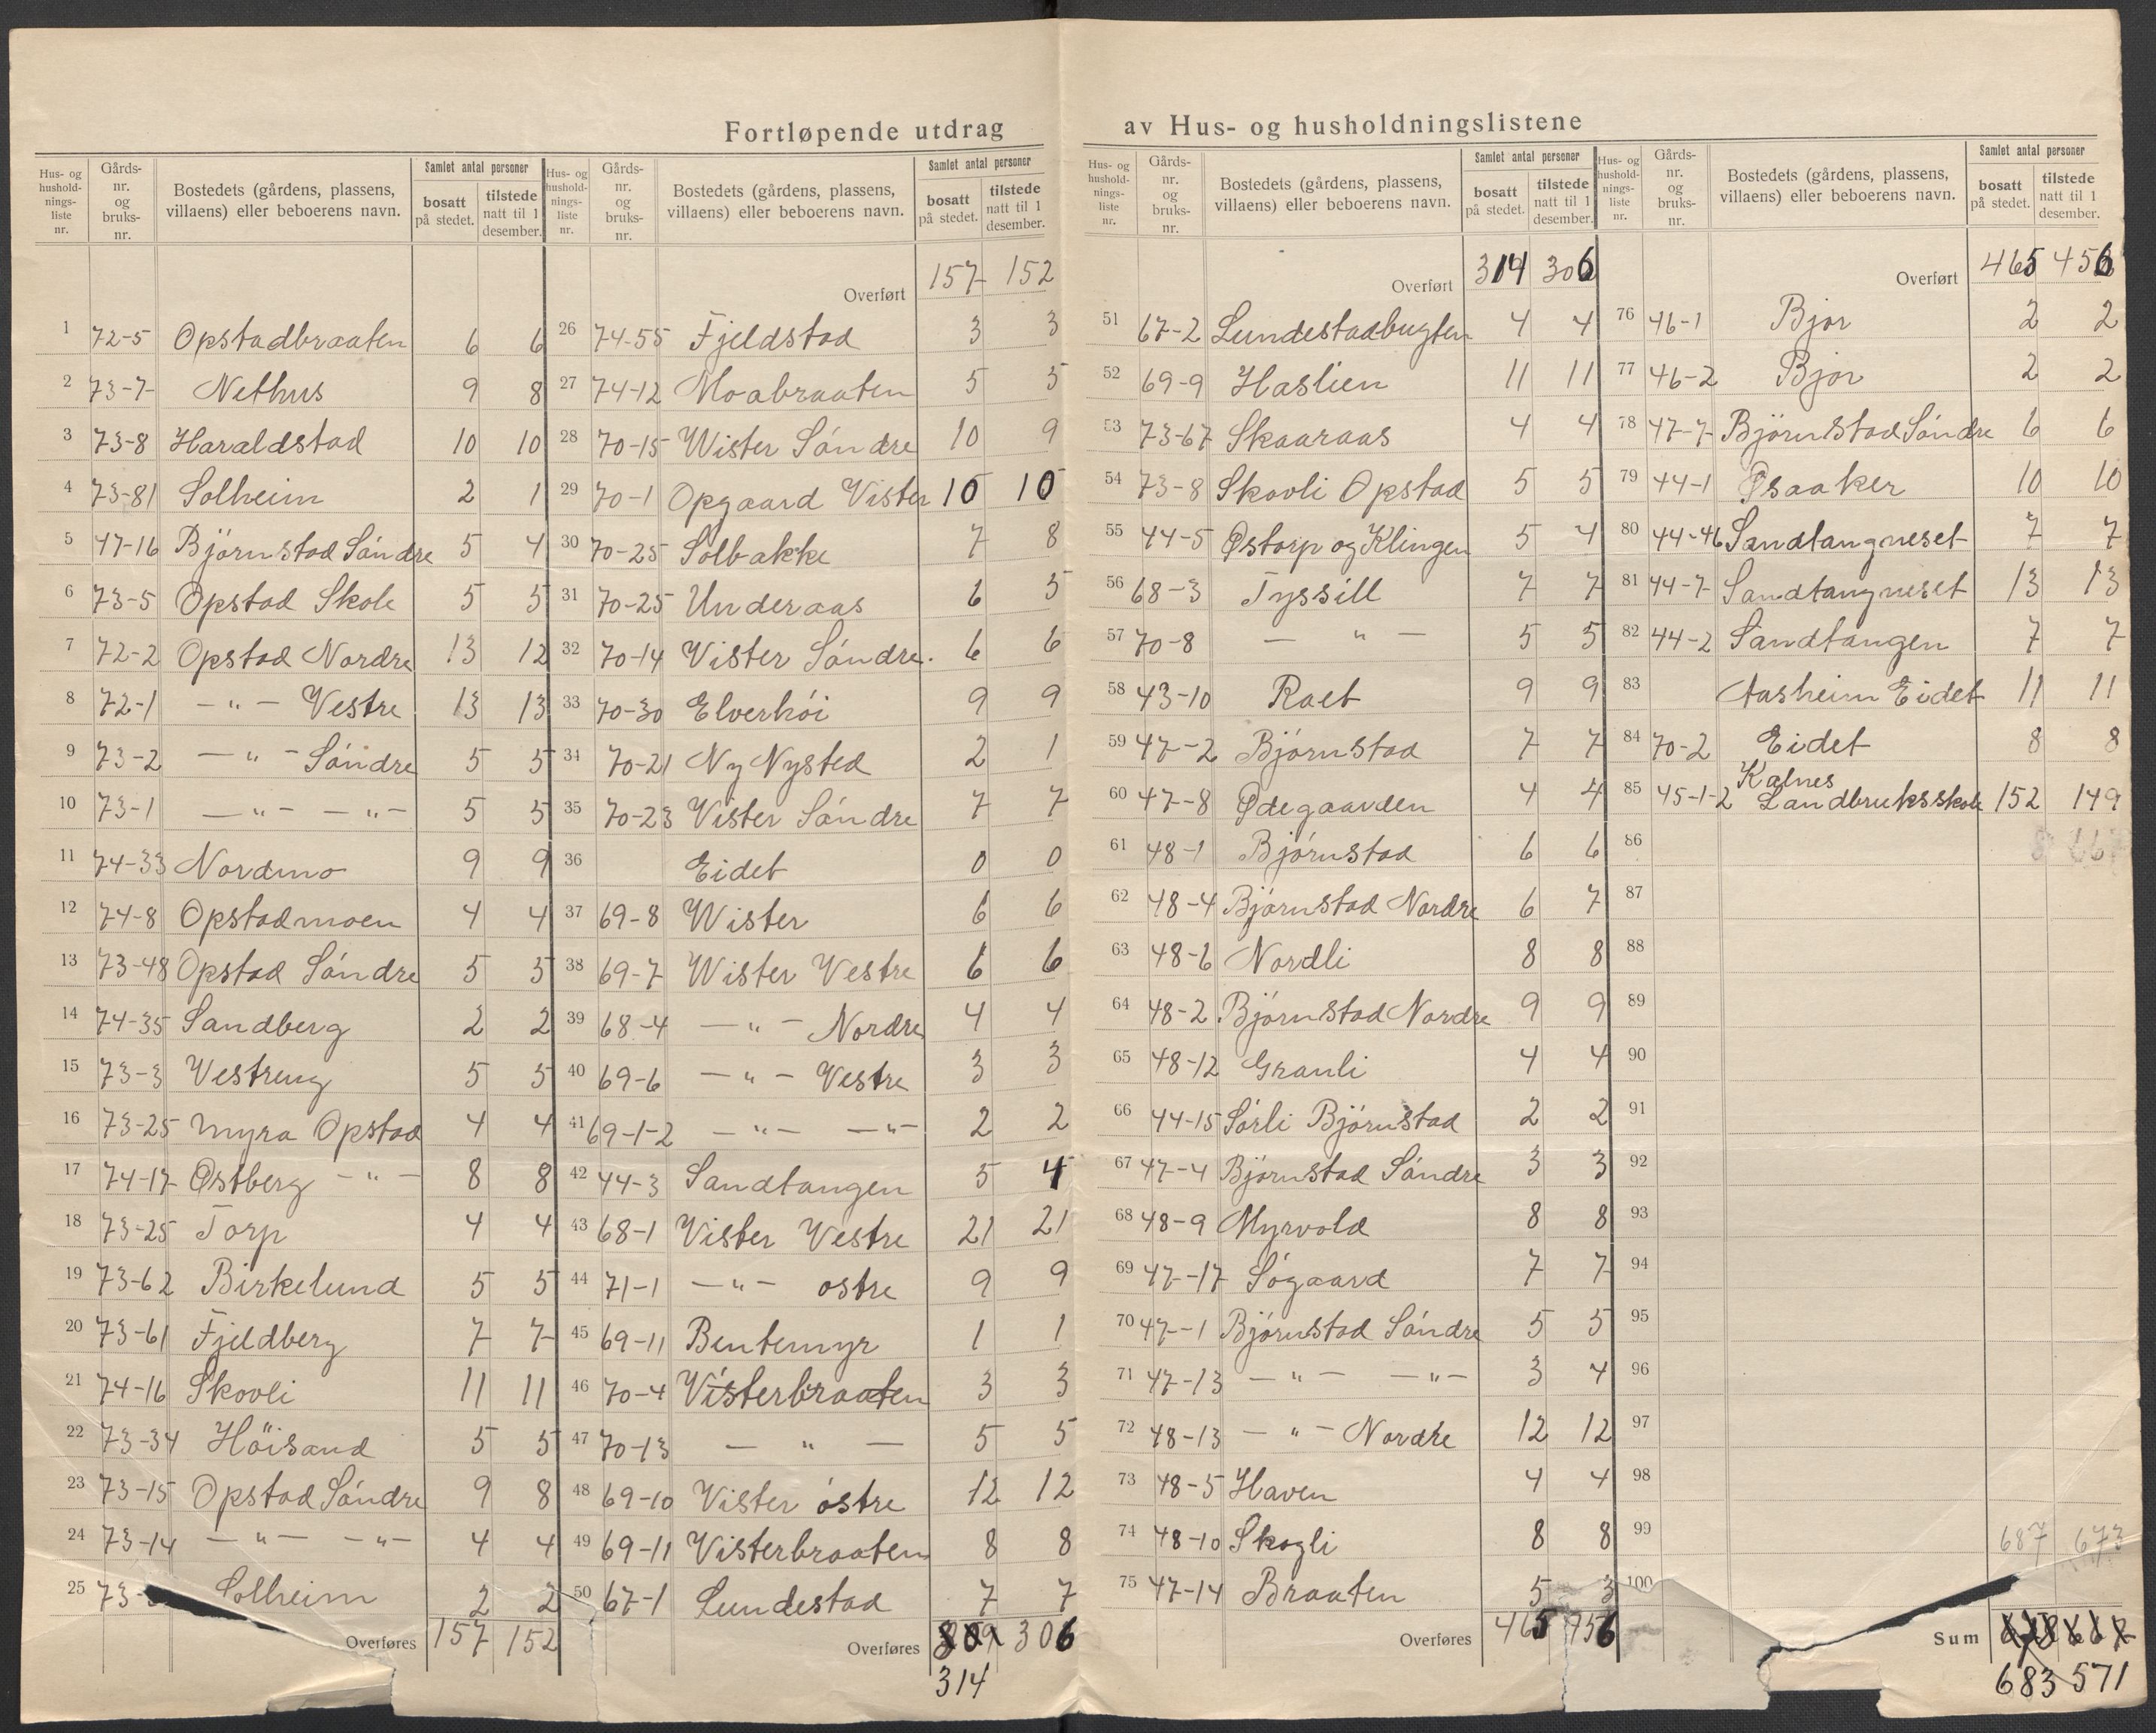 Fortløpende utdrag av Hus- og husholdningslistene
Hus- og hushold- nings- liste nr. | Gårds- nr. og bruks- nr. | Bostedets (gårdens, plassens, villaens) eller beboerens navn. | Samlet antal personer | bosatt på stedet. | tilstede natt til 1 desember.
1 72-5 Opstadbraaten 6 6
2 73-7 Nethus 9 8
3 73-8 Haraldstad 10 10
4 73-81 Solheim 2 1
5 47-16 Björnstad Söndre 5 4
6 73-5 Opstad Skole 5 5
7 72-2 Opstad Nordre 13 12
8 72-1 — " — Vestre 13 13
9 73-2 — " — Söndre 5 5
10 73-1 — " — — " — 5 5
11 74-33 Nordmo 9 9
12 74-8 Opstadmoen 4 4
13 73-48 Opstad Söndre 5 5
14 74-35 Sandberg 2 2
15 73-3 Vestreng 5 5
16 73-25 Myra Opstad 4 4
17 74-17 Østberg — " — 8 8
18 73-25 Torp 4 4
19 73-62 Birkelund 5 5
20 73-61 Fjeldberg 7 7
21 74-16 Skovli 11 11
22 73-34 Höisand 5 5
23 73-15 Opstad Söndre 9 8
24 73-14 — " — — " — 4 4
25 73- Solheim 2 2
Overføres 157 152
Hus- og hushold- nings- liste nr. | Gårds- nr. og bruks- nr. | Bostedets (gårdens, plassens, villaens) eller beboerens navn. | Samlet antal personer | bosatt på stedet. | tilstede natt til 1 desember.
Overført 157 152
26 74-55 Fjeldstad 3 3
27 74-12 Moabraaten 5 5
28 70-15 Wister Söndre 10 9
29 70-1 Opgaard Vister 10 10
30 70-25 Solbakke 7 8
31 70-25 Underaas 6 5
32 70-14 Vister Söndre. 6 6
33 70-30 Elverhöi 9 9
34 70-21 Ny Nysted 2 1
35 70-23 Vister Söndre 7 7
36 Eidet 0 0
37 69-8 Wister 6 6
38 69-7 Wister Vestre 6 6
39 68-4 — " — Nordre 4 4
40 69-6 — " — Vestre 3 3
41 69-1-2 — " — — " — 2 2
42 44-3 Sandtangen 5 4
43 68-1 Vister Vestre 21 21
44 71-1 — " — ostre 9 9
45 69-11 Bentemyr 1 1
46 70-4 Visterbraaten 3 3
47 70-13 — " — 5 5
48 69-10 Vister östre 12 12
49 69-11 Visterbraaten 8 8
50 67-1 Lundestad 7 7
Overføres 309 306
314
Hus- og hushold- nings- liste nr. | Gårds- nr. og bruks- nr. | Bostedets (gårdens, plassens, villaens) eller beboerens navn. | Samlet antal personer | bosatt på stedet. | tilstede natt til 1 desember.
Overført 314 306
51 67-2 Lundestadbugten 4 4
52 69-9 Haslien 11 11
53 73-67 Skaaraas 4 4
54 73-8 Skovli Opstad 5 5
55 44-5 Østorp og Klingen 5 4
56 68-3 Tyssill 7 7
57 70-8 — " — 5 5
58 43-10 Raet 9 9
59 47-2 Björnstad 7 7
60 47-8 Ødegaarden 4 4
61 48-1 Björnstad 6 6
62 48-4 Björnstad Nordre 6 7
63 48-6 Nordli 8 8
64 48-2 Björnstad Nordre 9 9
65 48-12 Granli 4 4
66 44-15 Sörli Björnstad 2 2
67 47-4 Björnstad Söndre 3 3
68 48-9 Myrvold 8 8
69 47-17 Sögaard 7 7
70 47-1 Björnstad Söndre 5 5
71 47-13 — " — — " — 3 4
72 48-13 — " — Nordre 12 12
73 48-5 Haven 4 4
74 48-10 Skogli 8 8
75 47-14 Braaten 5 3
Overføres 465 456
Hus- og hushold- nings- liste nr. | Gårds- nr. og bruks- nr. | Bostedets (gårdens, plassens, villaens) eller beboerens navn. | Samlet antal personer | bosatt på stedet. | tilstede natt til 1 desember.
Overført 465 456
76 46-1 Bjor 2 2
77 46-2 Bjor 2 2
78 47-7 Björnstad Söndre 6 6
79 44-1 Øsaaker 10 10
80 44-46 Sandtangneset 7 7
81 44-7 Sandtangneset 13 13
82 44-2 Sandtangen 7 7
83 Aasheim Eidet 11 11
84 70-2 Eidet 8 8
85 45-1-2 Kalnes Landbruksskole 152 149
86
87
88
89
90
91
92
93
94
95
96
97
98
99 687 673
100
Sum
683 571